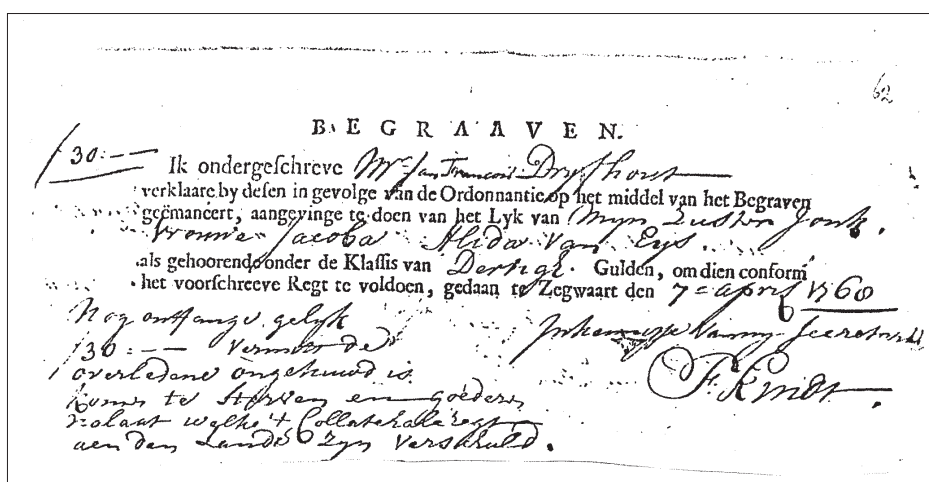 62
BEGRAAVEN.
/30:-- Ik ondergeschreve Mr. Jan Francois Drijfhout
verklaare by desen in gevolge van de Ordonnantie op het middel van het Begraven
geëmaneert, aangevinge te doen van het Lyk van Myn Zuster Jonk.
Vrouwe Jacoba Alida Van Eys.
als gehoorende onder de Klassis van Dertigh. Gulden, om dien conform
het voorschreeve Regt te voldoen, gedaan te Zegwaart den 7= april 1768
Nog ontfange gelyk
/30:-- Vermits de Secretaris
overledene ongehuwd is F. Kindt
komen te sterven en goederen
nalaat welke 't Collaterale regt
aen den Lande Zyn Verschuld.